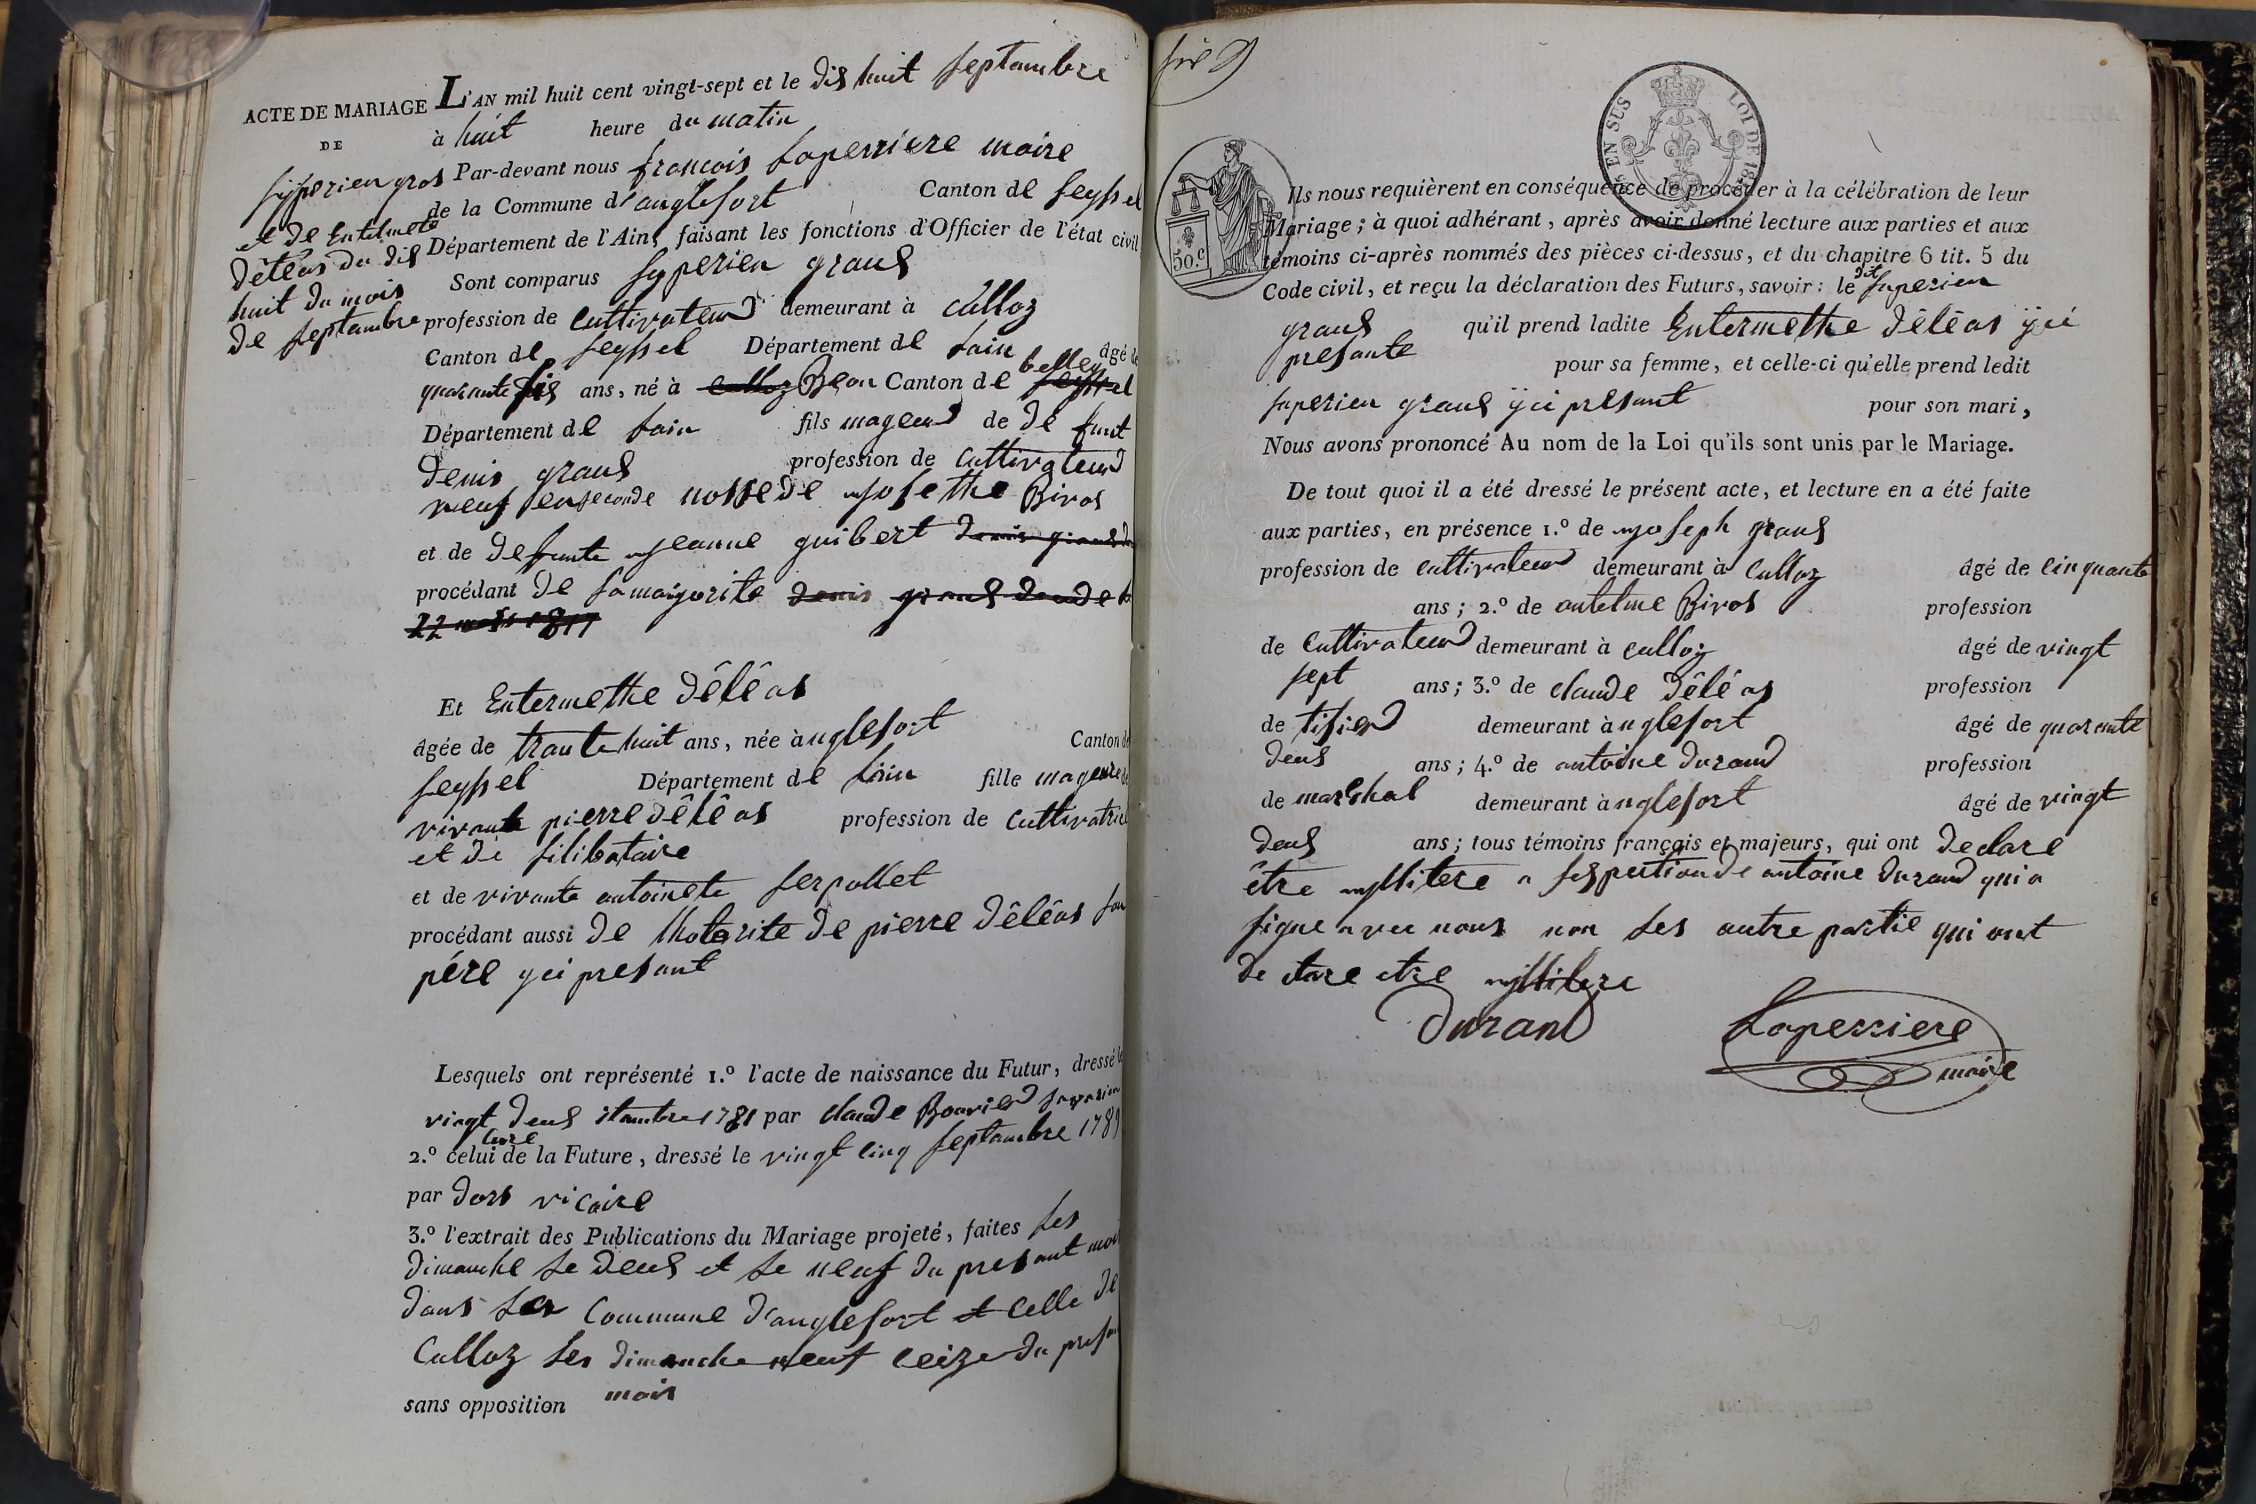 ACTE DE MARIAGE
DE
syperien gros
et de Entelmete
dêléas du dis
huit du mois
de septambre
L'AN mil huit cent vingt-sept et le dis huit septambre
à huit heure du matin
Par-devant nous francois Laperriere maire
de la Commune d'anglefort Canton de seyssel
Département de l'Ain, faisant les fonctions d'Officier de l'état civil
Sont comparus syperien graus
profession de cultivateur demeurant à Culloz
Canton de seyssel Département de Lain âgé de
quarante sis ans, né à culloz Beon Canton de seyssel belley
Département de Lain fils mageur de de funt
denis graus profession de cultivateur
veuf en seconde nosse de josethe Biros
et de defunte jeanne guibert denis graus
procédant de sa maigorite denis graus
22 1811
Et Entermethe dêlêas
âgée de trante huit ans, née à nglefort Canton de
seyssel Département de Lain fille mageure de
vivante pierre dêlêas profession de cultivatrice
et de silibataire
et de vivante antoinete serpollet
procédant aussi de lhotorite de pierre dêlêas son
père yci presant
Lesquels ont représenté 1.º l'acte de naissance du Futur, dressé le
vingt deus 1781 par claude Bouvier
cure
2.º celui de la Future, dressé le vingt cinq septambre 1789
par dors vicaire
3.º l'extrait des Publications du Mariage projeté, faites les
dimanche le deus et le neuf du presant mois
dans la commune d'anglefort et celle de
Culloz les dimanche neuf ceize du presant
sans opposition mois
Ils nous requièrent en conséquence de procéder à la célébration de leur
Mariage; à quoi adhérant, après avoir donné lecture aux parties et aux
témoins ci-après nommés des pièces ci-dessus, et du chapitre 6 tit. 5 du
Code civil, et reçu la déclaration des Futurs, savoir: le dit saperien
graus qu'il prend ladite Entermethe dêlêas yci
presante pour sa femme, et celle-ci qu'elle prend ledit
saperien graus yci presant pour son mari,
Nous avons prononcé Au nom de la Loi qu'ils sont unis par le Mariage.
De tout quoi il a été dressé le présent acte, et lecture en a été faite
aux parties, en présence 1.º de joseph graus
profession de cultivateur demeurant à culloz âgé de cinquante
ans; 2.º de antelme Biros profession
de cultivateur demeurant à culloz âgé de vingt
sept ans; 3.º de claude dêléas profession
de tisier demeurant à nglefort âgé de quarante
deus ans; 4.º de antoine durand profession
de mareshal demeurant à nglefort âgé de vingt
deus ans; tous témoins français et majeurs, qui ont declare
être yllitere a sespertion de antoine durand qui a
signe avec nous non les autre partie qui ont
de clare etre yllitere
Durand
Laperriere
maire
EN SUS
LOI DE 18
50.c